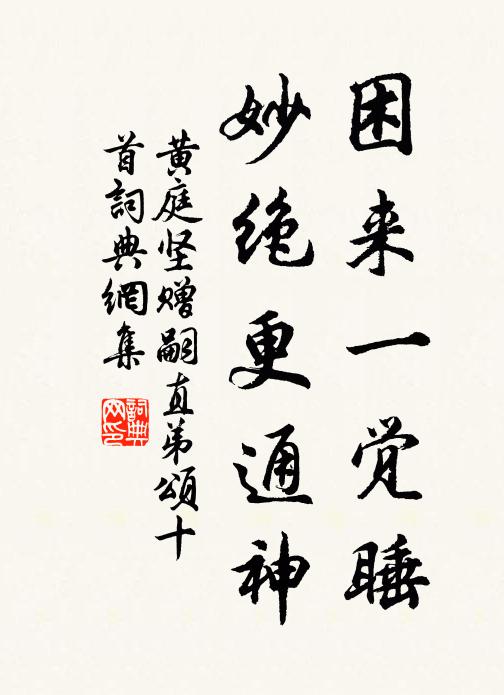 困来一觉睡
妙绝更通神
黄庭坚赠嗣直弟颂十
首词典網集
詞典网印